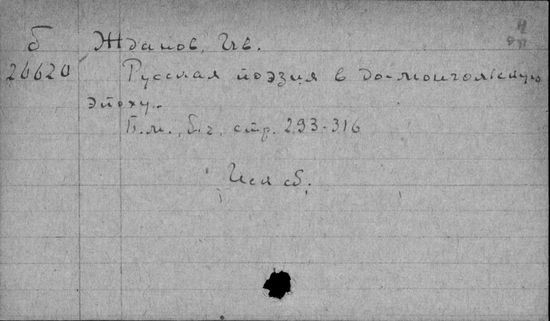 б Жданов, Ив.
26620 Русская поэзия в до-монгольскую
эпоху.
Б.м., б.г., стр. 293-316